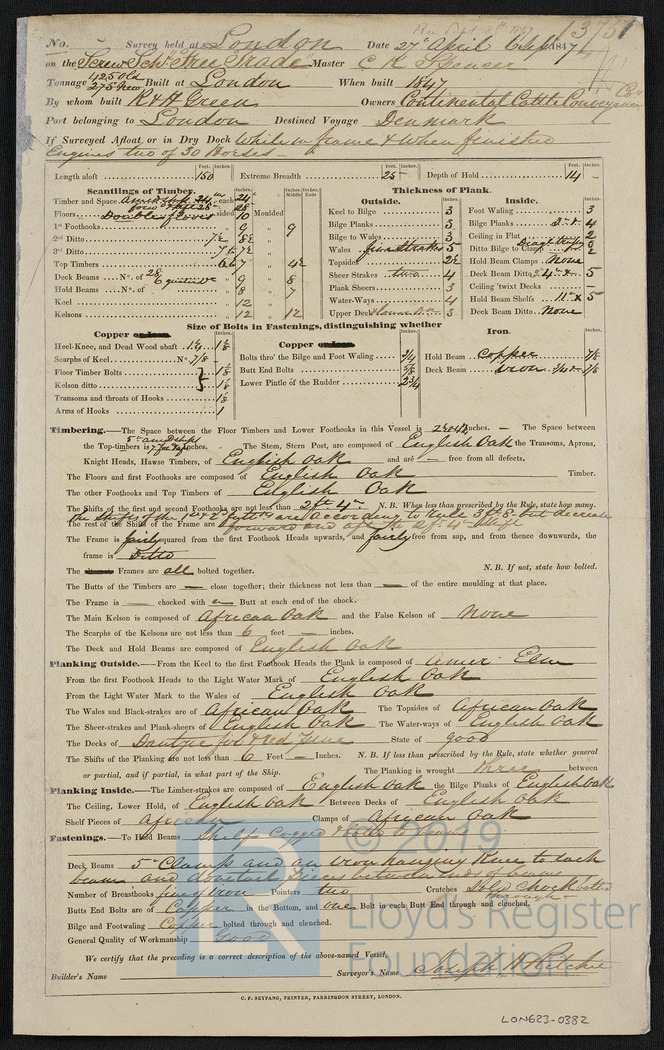 13751
No. Survey held at London Date 27th April 1847
on the Screw Schr "Free Trade" Master C R Spencer
Tonnage 425 Old 275 New Built at London When built 1847
By whom built R & H Green Owners Continental Cattle Conveyance Coy
Port belonging to London Destined Voyage Denmark
If Surveyed Afloat or in Dry Dock While in frame & when finished
Engines two of 30 Horses
Feet. Inches. Feet. Inches. Feet. Inches.
Length aloft 150 Extreme Breadth 25 — Depth of Hold 14 —
Scantlings of Timber.
Timber and Space each 24
Floors Double floors sided 10 Moulded
1st Foothooks 9 " 9
2nd Ditto 7½ 8½ "
3rd Ditto
Top Timbers 4½
Deck Beams No. of 28 9 " 8
Hold Beams No. of 8 " 7
Keel 12 "
Kelsons 12 " 12
Thickness of Plank.
Outside.
Keel to Bilge 3
Bilge Planks 3
Bilge to Wales 3
Wales five Strakes 5
Topsides 2½
Sheer Strakes two 4
Plank Sheers 3
Water-Ways 4
Upper Deck 3
Inside.
Foot Waling 3
Bilge Planks 4
Ceiling in Flat 2
Ditto Bilge to Clamp 2
Hold Beam Clamps None
Deck Beam Ditto 5
Ceiling 'twixt Decks —
Hold Beam Shelfs 5
Deck Beam Ditto None
Size of Bolts in Fastenings, distinguishing whether
Copper or Iron.
Heel-Knee, and Dead Wood abaft 1⅛
Scarphs of Keel No. 7/8
Floor Timber Bolts 1⅛
Kelson ditto 1⅛
Transoms and throats of Hooks 1⅛
Arms of Hooks 1
Copper or Iron.
Bolts thro' the Bilge and Foot Waling 3/4
Butt End Bolts 5/8
Lower Pintle of the Rudder 2¾
Iron.
Hold Beam Copper 7/8
Deck Beam Iron 7/8
Timbering.—The Space between the Floor Timbers and Lower Foothooks in this Vessel is Inches. — The Space between
the Top-timbers is Inches. The Stem, Stern Post, are composed of English Oak the Transoms, Aprons,
Knight Heads, Hawse Timbers, of English Oak and are — free from all defects.
The Floors and first Foothooks are composed of English Oak Timber.
The other Foothooks and Top Timbers of English Oak
The Shifts of the first and second Foothooks are not less than 2 ft. 4 in. N.B. When less than prescribed by the Rule, state how many.
The shifts of the 1st & 2nd futtocks are according to Rule 3 ft. 8 in but decrease
The rest of the Shifts of the Frame are forward and aft to 2 ft. 4
The Frame is fairly squared from the first Foothook Heads upwards, and fairly free from sap, and from thence downwards, the
frame is Ditto
The alternate Frames are all bolted together. N.B. If not, state how bolted.
The Butts of the Timbers are — close together; their thickness not less than — of the entire moulding at that place.
The Frame is — chocked with a Butt at each end of the chock.
The Main Kelson is composed of African Oak and the False Kelson of None
The Scarphs of the Kelsons are not less than 6 feet — inches.
The Deck and Hold Beams are composed of English Oak
Planking Outside.—From the Keel to the first Foothook Heads the Plank is composed of Amer. Elm
From the first Foothook Heads to the Light Water Mark of English Oak
From the Light Water Mark to the Wales of English Oak
The Wales and Black-strakes are of African Oak The Topsides of African Oak
The Sheer-strakes and Plank-sheers of English Oak The Water-ways of English Oak
The Decks of Dantzic fir & red Pine State of good
The Shifts of the Planking are not less than 6 Feet — Inches. N.B. If less than prescribed by the Rule, state whether general
or partial, and if partial, in what part of the Ship. The Planking is wrought three between
Planking Inside.—The Limber-strakes are composed of English Oak the Bilge Planks of English Oak
The Ceiling, Lower Hold, of English Oak Between Decks of English Oak
Shelf Pieces of African Clamps of African Oak
Fastenings.—To Hold Beams Shelf Cogged & bolted
Deck Beams 5 in Clamps and an iron hanging Knee to each
beam and dovetail pieces between ends of beams
Number of Breasthooks five of iron Pointers two Crutches Solid Chock bolted through
Butts End Bolts are of Copper in the Bottom, and one Bolt in each Butt End through and clenched.
Bilge and Footwaling Copper bolted through and clenched.
General Quality of Workmanship Good
We certify that the preceding is a correct description of the above-named Vessel,
Builder's Name Surveyor's Name Joseph H Ritchie
C. F. SEYFANG, PRINTER, FARRINGDON STREET, LONDON.
LON623-0382
© 2019
Lloyd's Register
Foundation